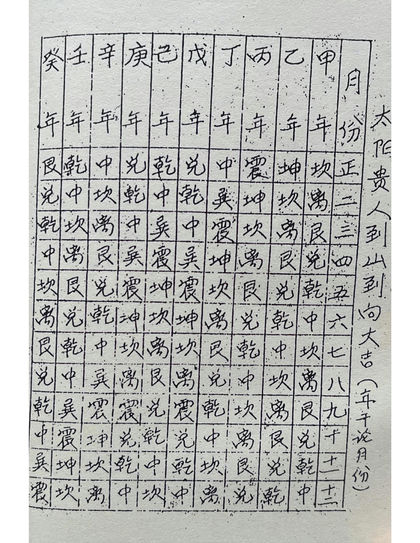 太阳贵人到山到向大吉(年干论月份)
月份正二三四五六七八九十十一十二
甲年坎离艮兑乾中坎离艮兑乾中
乙年坤坎离艮兑乾中坎离艮兑乾
丙年震坤坎离艮兑乾中坎离艮兑
丁年中巽震坤坎离艮兑乾中坎离
戊年兑乾中巽震坤坎离艮兑乾中
己年乾中巽震坤坎离艮兑乾中坎
庚年兑乾中巽震坤坎离震兑乾中
辛年中坎离艮兑乾中巽震坤坎离
壬年乾中坎离艮兑乾中巽震坤坎
癸年艮兑乾中坎离艮兑乾中巽震